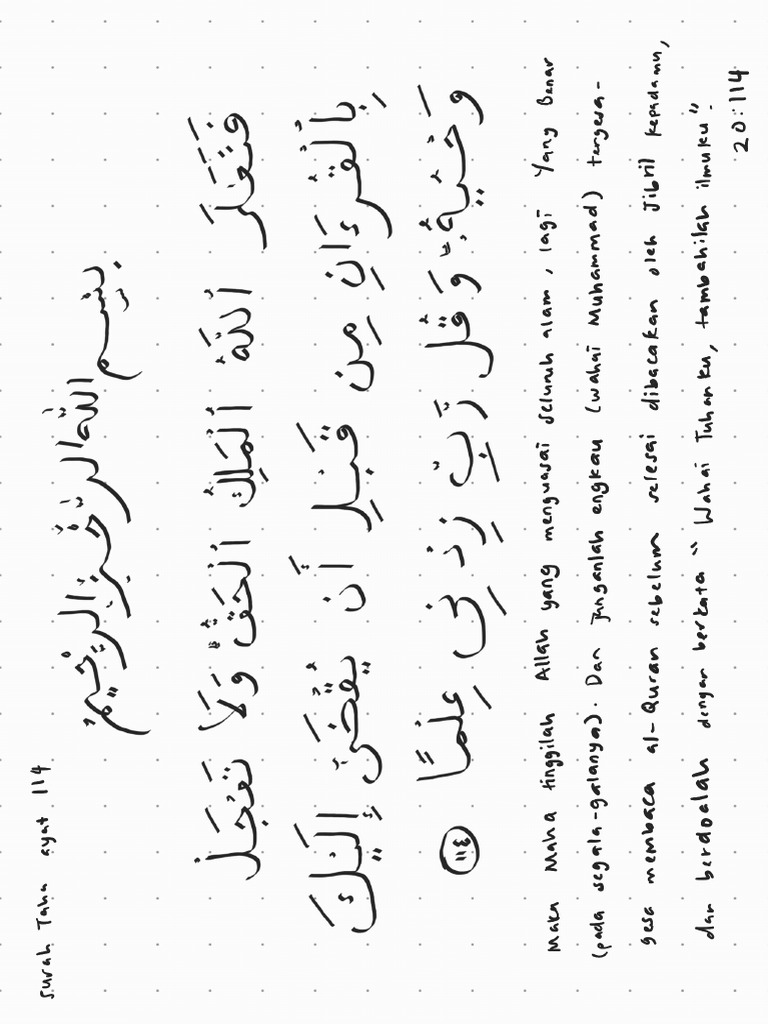 surah Taha ayat 114
بِسْمِ اللّٰهِ الرَّحْمٰنِ الرَّحِيْمِ
فَتَعَٰلَى ٱللَّهُ ٱلْمَلِكُ ٱلْحَقُّ وَلَا تَعْجَلْ
بِٱلْقُرْءَانِ مِن قَبْلِ أَن يُقْضَىٰٓ إِلَيْكَ
وَحْيُهُۥ وَقُل رَّبِّ زِدْنِى عِلْمًا ١١٤
Maka Maha tinggilah Allah yang menguasai seluruh alam, lagi Yang Benar
(pada segala-galanya). Dan janganlah engkau (wahai Muhammad) tergesa-
gesa membaca al-Quran sebelum selesai dibacakan oleh Jibril kepadamu,
dan berdoalah dengan berkata "Wahai Tuhanku, tambahilah ilmuku".
20:114